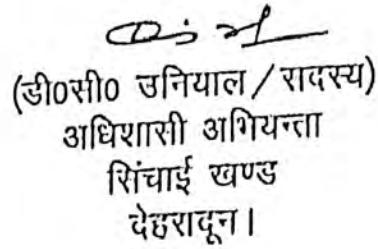 (डी०सी० उनियाल / सदस्य)
अधिशासी अभियन्ता
सिंचाई खण्ड
देहरादून।